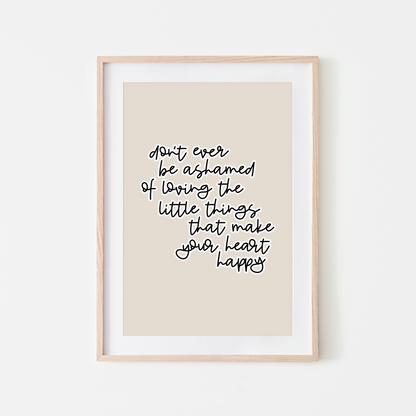 don't ever
be ashamed
of loving the
little things
that make
your heart
happy